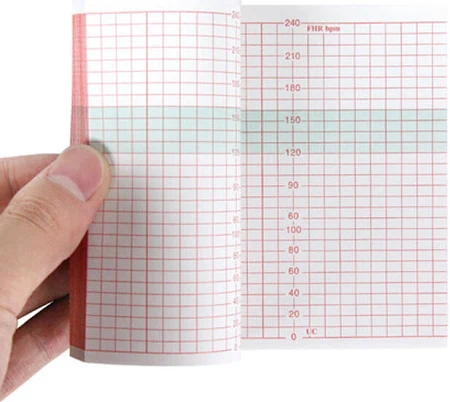 240
FHR bpm
210
180
150
120
90
60
100
80
60
40
20
0
UC